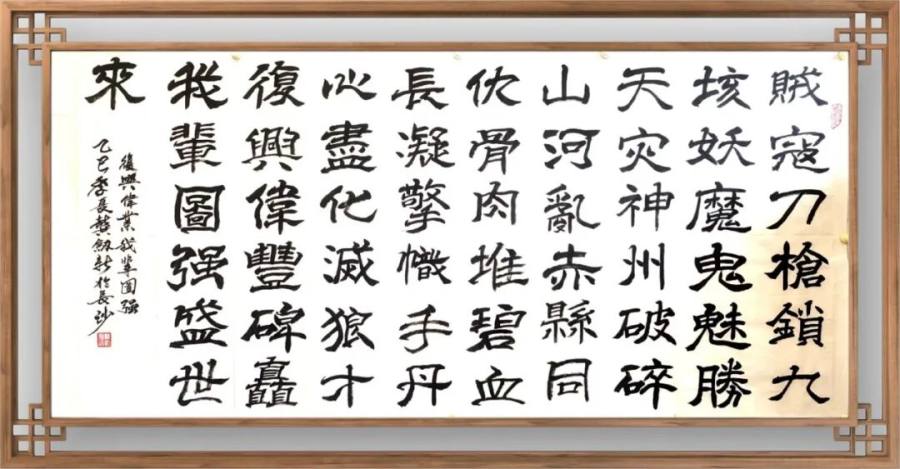 賊寇刀槍鎖九
垓妖魔鬼魅勝
天灾神州破碎
山河亂赤縣同
仇骨肉堆碧血
長凝擎幟手丹
心盡化滅狼才
復興偉豐碑矗
我輩圖强盛世
來
復興偉業我輩圖强
乙巳季龔劍新於長沙